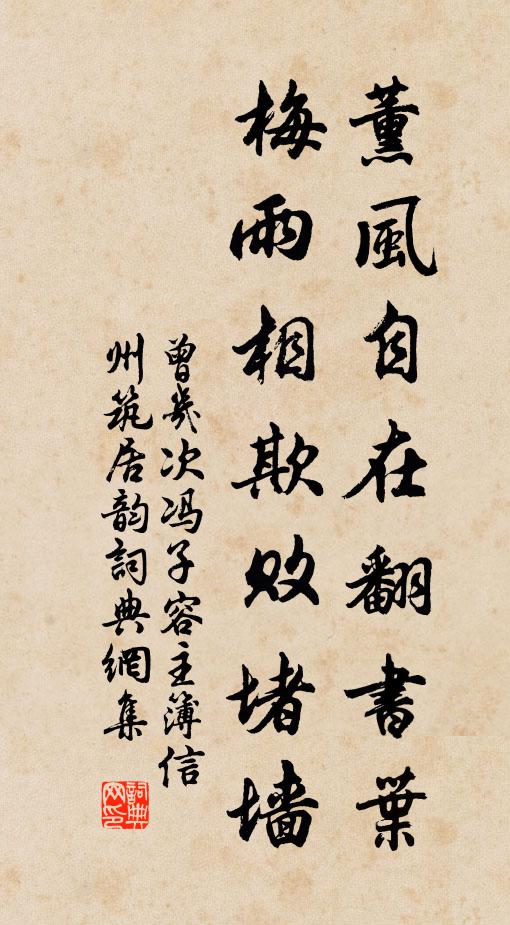 薰風自在翻書葉
梅雨相欺敗堵墻
曾幾次冯子容主簿信
州筑居韵詞典網集
詞典網印